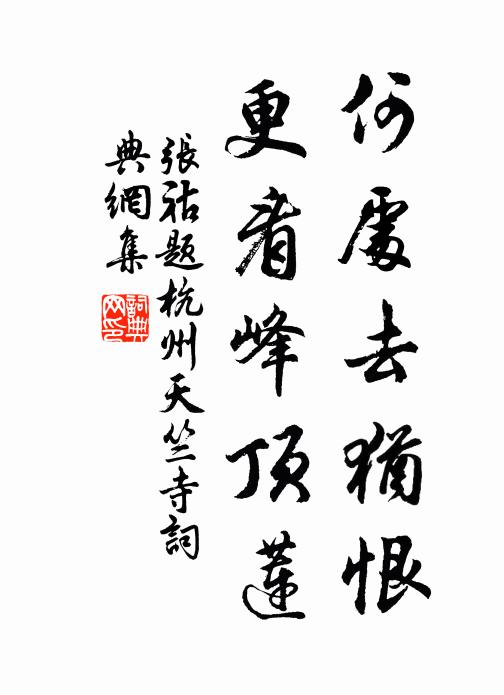 何處去猶恨
更看峰頂蓮
張祜題杭州天竺寺詞
典網集
詞典網印